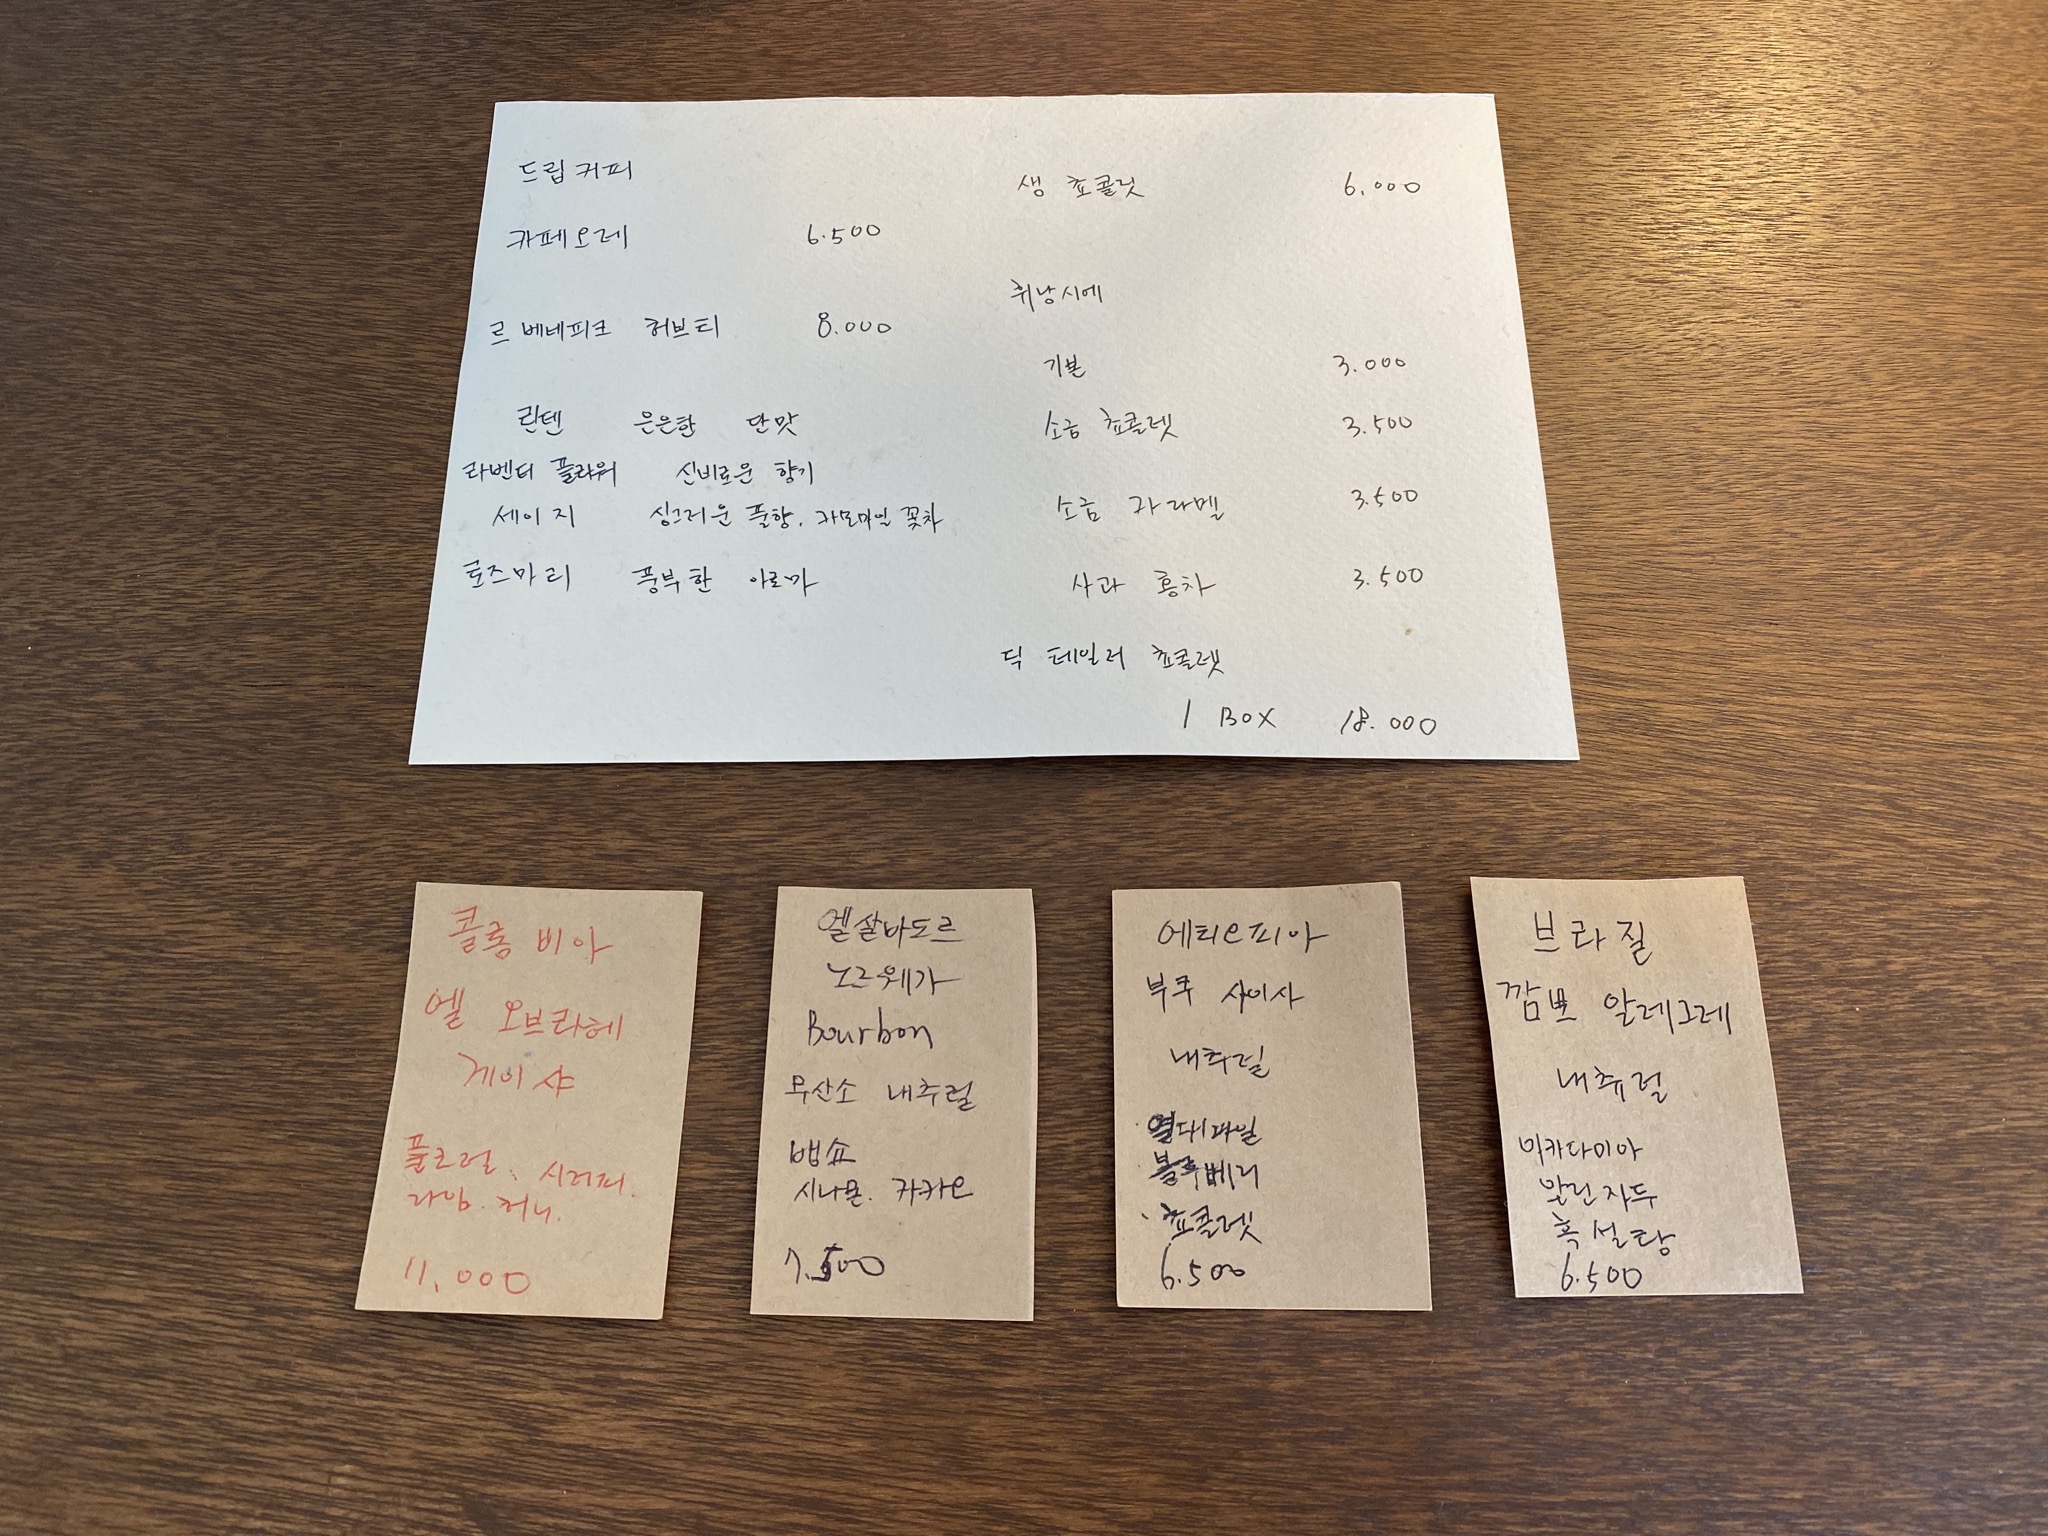 드립커피
카페오레 6.500
르 베네피크 허브티 8.000
린텐 은은한 단맛
라벤더 플라워 신비로운 향기
세이지 싱그러운 풀향. 카모마일 꽃차
로즈마리 풍부한 아로마
생 쵸콜릿 6.000
휘낭시에
기본 3.000
소금 쵸콜렛 3.500
소금 카라멜 3.500
사과 홍차 3.500
딕 테일러 쵸콜렛
1 BOX 18.000
콜롬비아
엘 오브라헤
게이샤
플로럴. 시러피.
라임. 허니.
11,000
엘살바도르
노르웨가
Bourbon
무산소 내추럴
뱅쇼
시나몬. 카카오
7.500
에티오피아
부쿠 사이사
내추럴
열대과일
블루베리
쵸콜렛
6.500
브라질
깜뽀 알레그레
내츄럴
마카다미아
말린자두
흑설탕
6.500